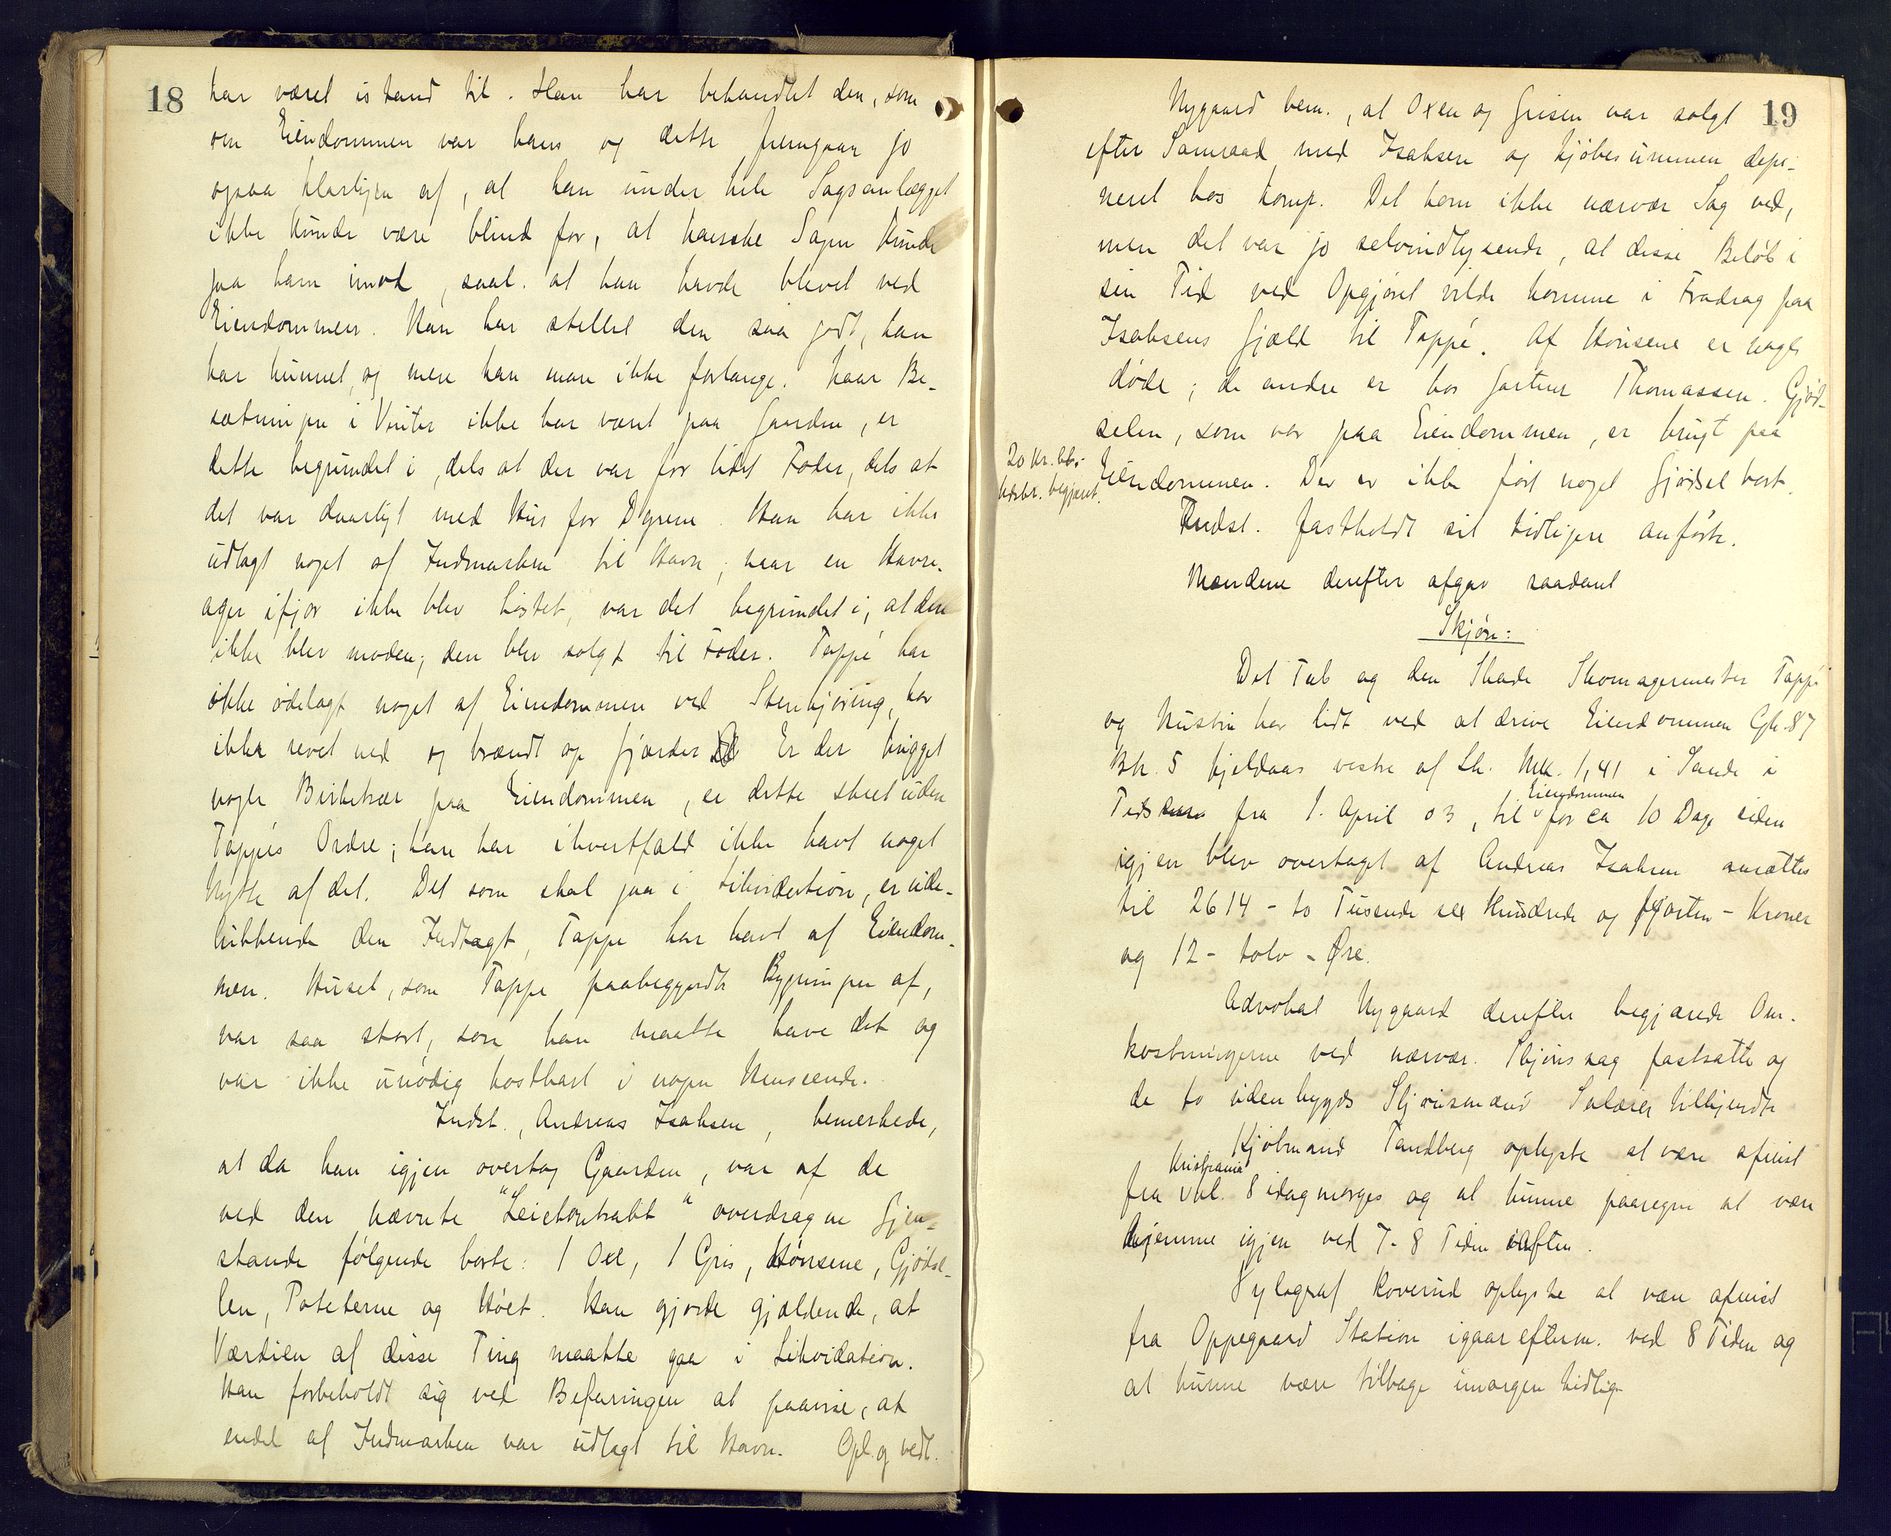 18
har været istand til. Han har behandlet den, som
om Eiendommen var hans og dette fremgaar jo
ogsaa klarligen af, at han under hele Sagsanlægget
ikke kunde være blind for, at kanske Sagen kunde
gaa ham imod, saal. at han havde blevet ved
Eiendommen. Han har stellet den saa godt, han
har kunnet, og mere kan man ikke forlange. Naar Be-
sætningen i Vinter ikke har været paa Gaarden, er
dette begrundet i, dels at der var for lidet Foder, dels at
det var daarligt med Hus for Dyrene. Han har ikke
udlagt noget af Indmarken til Havn; naar en Havre-
ager ifjor ikke blev høstet, var det begrundet i, at den
ikke blev moden; den blev solgt til Foder. Tappé har
ikke ødelagt noget af Eiendommen ved Stenkjøring, har
ikke revet ned og brændt op gjærder. Er der hugget
nogle Birketrær paa Eiendommen, er dette skeet uden
Tappés Ordre; han har ihvertfald ikke havt noget
Nytte af det. Det som skal gaa i Likvidation, er ude-
lukkende den Indtægt, Tappe har havt af Eiendom-
men. Huset, som Tappe paabegyndte Bygningen af,
var saa stort, som han maatte have det og
var ikke unødig kostbart i nogen Henseende.
Indst., Andreas Isaksen, bemerkede,
at da han igjen overtog Gaarden, var af de
ved den nævnte "Leiekontrakt" overdragne Gjen-
stande følgende borte: 1 Oxe, 1 Gris, Hønsene, Gjøds-
len, Poteterne og Høet. Han gjorde gjældende, at
Værdien af disse Ting maatte gaa i Likvidation.
Han forbeholdt sig ved Befaringen at paavise, at
endel af Indmarken var udlagt til Havn. Opl. og vedt.
19
Nygaard bem., at Oxen og Grisen var solgt
efter Samraad med Isaksen og Kjøbesummen depo-
neret hos Komp. Det kom ikke nærvær. Sag ved,
men det var jo selvindlysende, at disse Beløb i
sin Tid ved Opgjøret vilde komme i Fradrag paa
Isaksens Gjæld til Tappé. Af Hønsene er nogle
døde; de andre er hos Gartner Thomassen. Gjød-
selen, som var paa Eiendommen, er brugt paa
Eiendommen. Der er ikke ført noget Gjødsel bort.
20 Kr.
begjært.
Indst. fastholdt sit tidligere anførte.
Mændene derefter afgav saadant
Skjøn:
Det Tab og den Skade Skomagermester Tappé
og Hustru har lidt ved at drive Eiendommen Gh. 87
Bh. 5 Kjeldaas vestre af Sk. Mk. 1,41 i Sande i
Tids fra 1. April 03, til Eiendommen for ca 10 Dage siden
igjen blev overtaget af Andreas Isaksen ansættes
til 2614 - to Tusende sex Hundrede og fjorten - Kroner
og 12 - tolv - Øre.
Advokat Nygaard derefter begjærede Om-
kostningerne ved nærvær. Skjønssag fastsatte og
de to udenbygds Skjønsmænd Salærer tilkjendte
Kjøbmand Tandberg oplyste at være afreist
fra Kristiania kl. 8 idagmorges og at kunne paaregne at være
hjemme igjen ved 7-8 Tiden iaften.
Xylograf Koverud oplyste at være afreist
fra Oppegaard Station igaar efterm. ved 8 Tiden og
at kunne være tilbage imorgen tidlig.